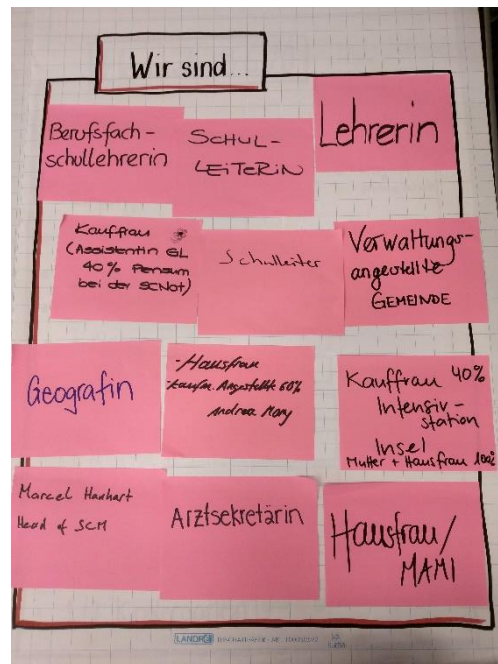 Wir sind...
Berufsfach-
schullehrerin
SCHUL-
LEITERIN
Lehrerin
Kauffrau
(Assistentin GL
40% Pensum
bei der SCNAT)
Schulleiter
Verwaltungs-
angestellte
GEMEINDE
Geografin
- Hausfrau
- kaufm. Angestellte 60%
Andrea
Kauffrau 40%
Intensiv-
station
Insel
Mutter + Hausfrau 100%
Marcel Hanhart
Head of SCM
Arztsekretärin
Hausfrau/
MAMI